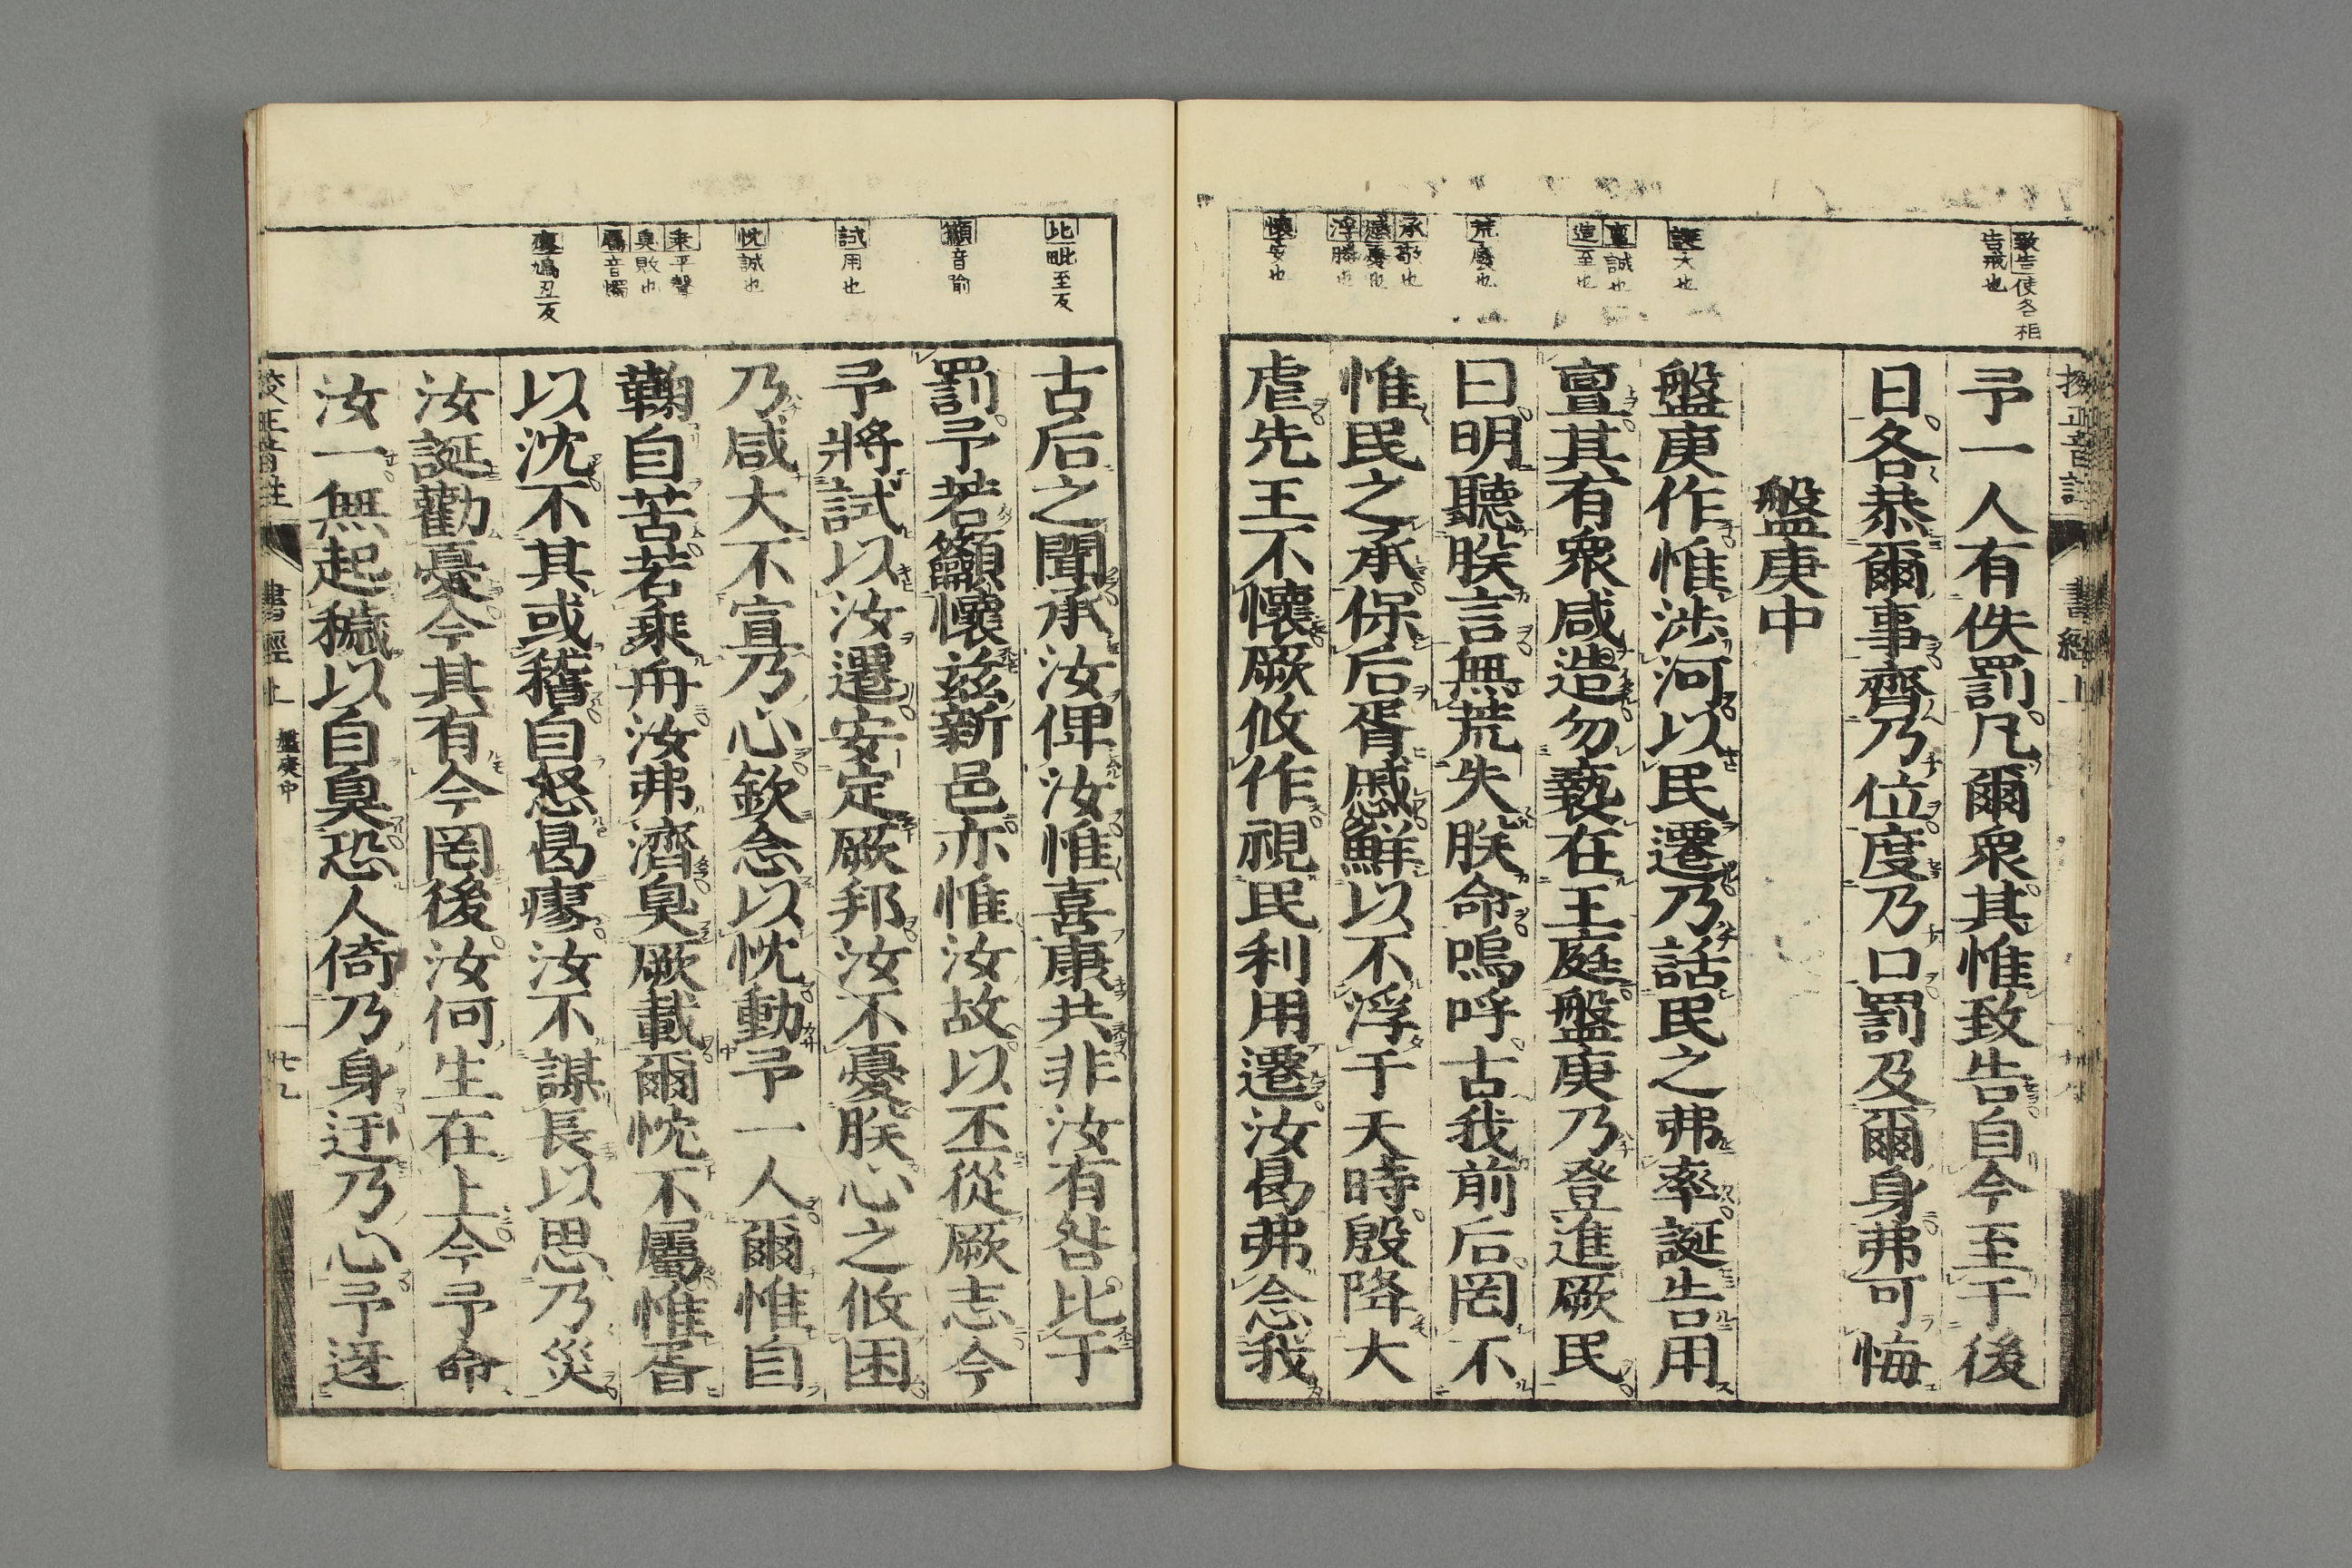 致告使各相
告戒也
誕大也
亶誠也
造至也
荒廢也
承敬也
慼憂也
浮勝也
懷安也
予一人有佚罰凡爾衆其惟致告自今至于後
日各恭爾事齊乃位度乃口罰及爾身弗可悔
盤庚中
盤庚作惟涉河以民遷乃話民之弗率誕告用
亶其有衆咸造勿褻在王庭盤庚乃登進厥民
曰明聽朕言無荒失朕命嗚呼古我前后罔不
惟民之承保后胥慼鮮以不浮于天時殷降大
虐先王不懷厥攸作視民利用遷汝曷弗念我
比毗至反
籲音喻
試用也
忱誠也
乘平聲
臭敗也
屬音燭
瘳鳩丑反
古后之聞承汝俾汝惟喜康共非汝有咎比于
罰予若籲懷茲新邑亦惟汝故以丕從厥志今
予將試以汝遷安定厥邦汝不憂朕心之攸困
乃咸大不宣乃心欽念以忱動予一人爾惟自
鞠自苦若乘舟汝弗濟臭厥載爾忱不屬惟胥
以沈不其或稽自怒曷瘳汝不謀長以思乃災
汝誕勸憂今其有今罔後汝何生在上今予命
汝一無起穢以自臭恐人倚乃身迂乃心予迓
書經上 盤庚中